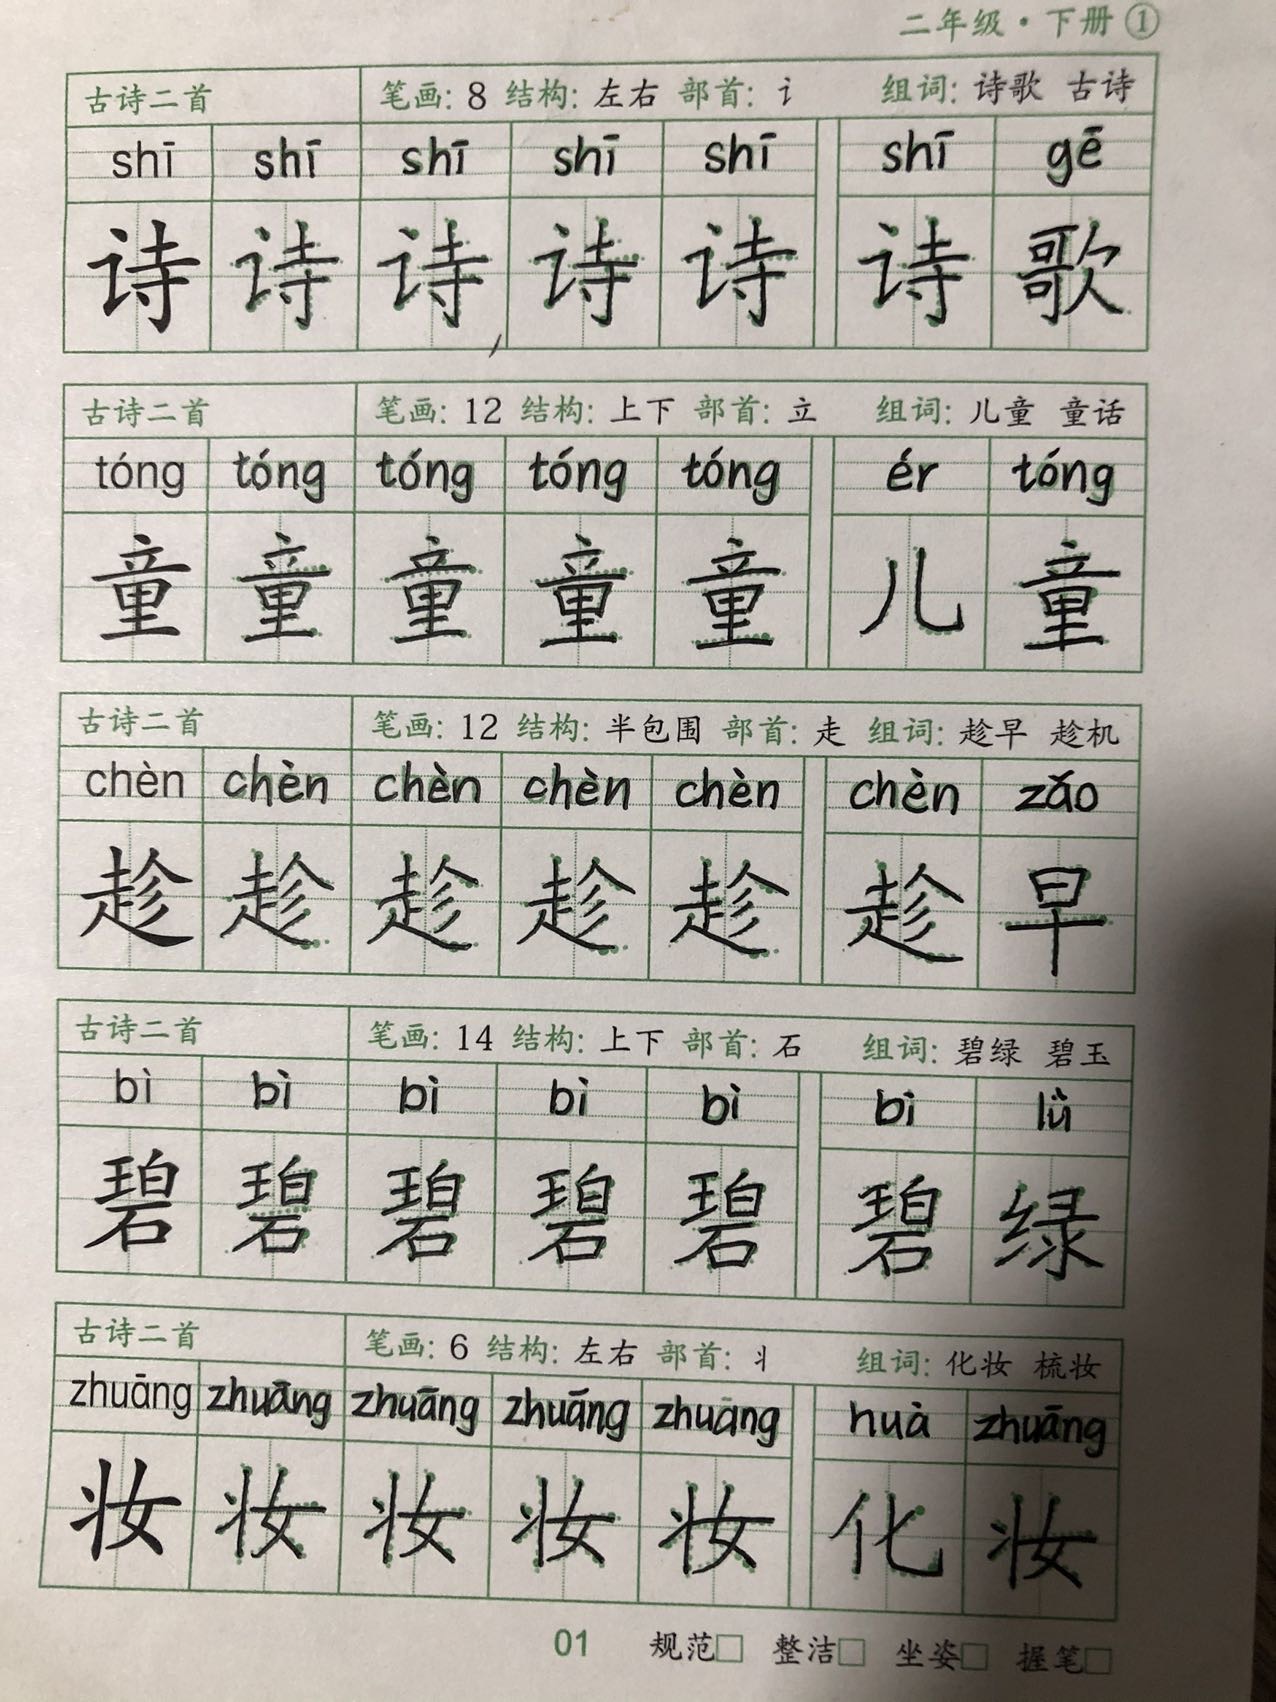 二年级·下册①
古诗二首 笔画: 8 结构: 左右 部首: 讠 组词: 诗歌 古诗
shī shī shī shī shī shī gē
诗 诗 诗 诗 诗 诗 歌
古诗二首 笔画: 12 结构: 上下 部首: 立 组词: 儿童 童话
tóng tóng tóng tóng tóng ér tóng
童 童 童 童 童 儿 童
古诗二首 笔画: 12 结构: 半包围 部首: 走 组词: 趁早 趁机
chèn chèn chèn chèn chèn chèn zǎo
趁 趁 趁 趁 趁 趁 早
古诗二首 笔画: 14 结构: 上下 部首: 石 组词: 碧绿 碧玉
bì bì bì bì bì bì lǜ
碧 碧 碧 碧 碧 碧 绿
古诗二首 笔画: 6 结构: 左右 部首: 丬 组词: 化妆 梳妆
zhuāng zhuāng zhuāng zhuāng zhuāng huà zhuāng
妆 妆 妆 妆 妆 化 妆
01 规范□ 整洁□ 坐姿□ 握笔□